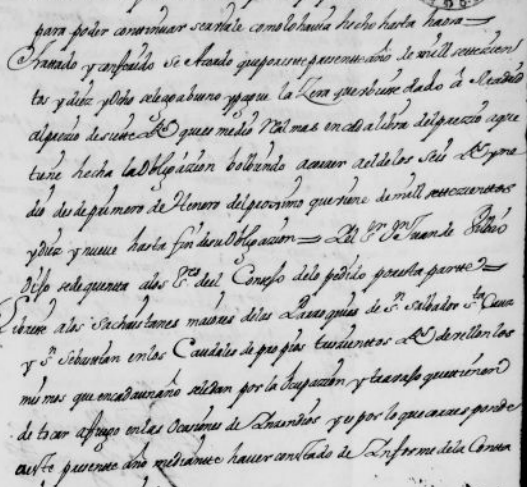 para poder continuar se año le como lo havia hecho hasta haora =
Tratado y conferido se Acordo que por este presente año de mill settezien
tos y diez y ocho se le gora bueno y pague la Zera que hubiere dado à
al prezio de siete Rs que es medio Real mas en cada libra del prezio a que
tiene hecha la Obligazion bolbiendo a correr a el de los seis Rs y me
dio desde primero de Henero del proximo que viene de mill settezientos
y diez y nueve hasta fin de su Obligazion = El Sr Dn Juan de
Dijo se de quenta a los Sres del Consejo de lo pedido por esta parte =
Librese a los Sachristanes maiores de las Parroquias de Sn Salbador Sta Cruz
y Sn Sebastian en los Caudales de propios trezientos Rs de vellon los
mismos que en cada un año se le dan por la Ocupazion y travajo que tienen
de tocar a fuego en las Ocasiones de Inzendios y es por lo que corresponde
a este presente año mediante haver constado de Informe de la Conta